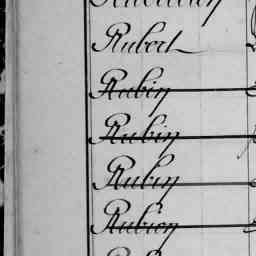 Rubert
Rubin
Rubin
Rubin
Rubion